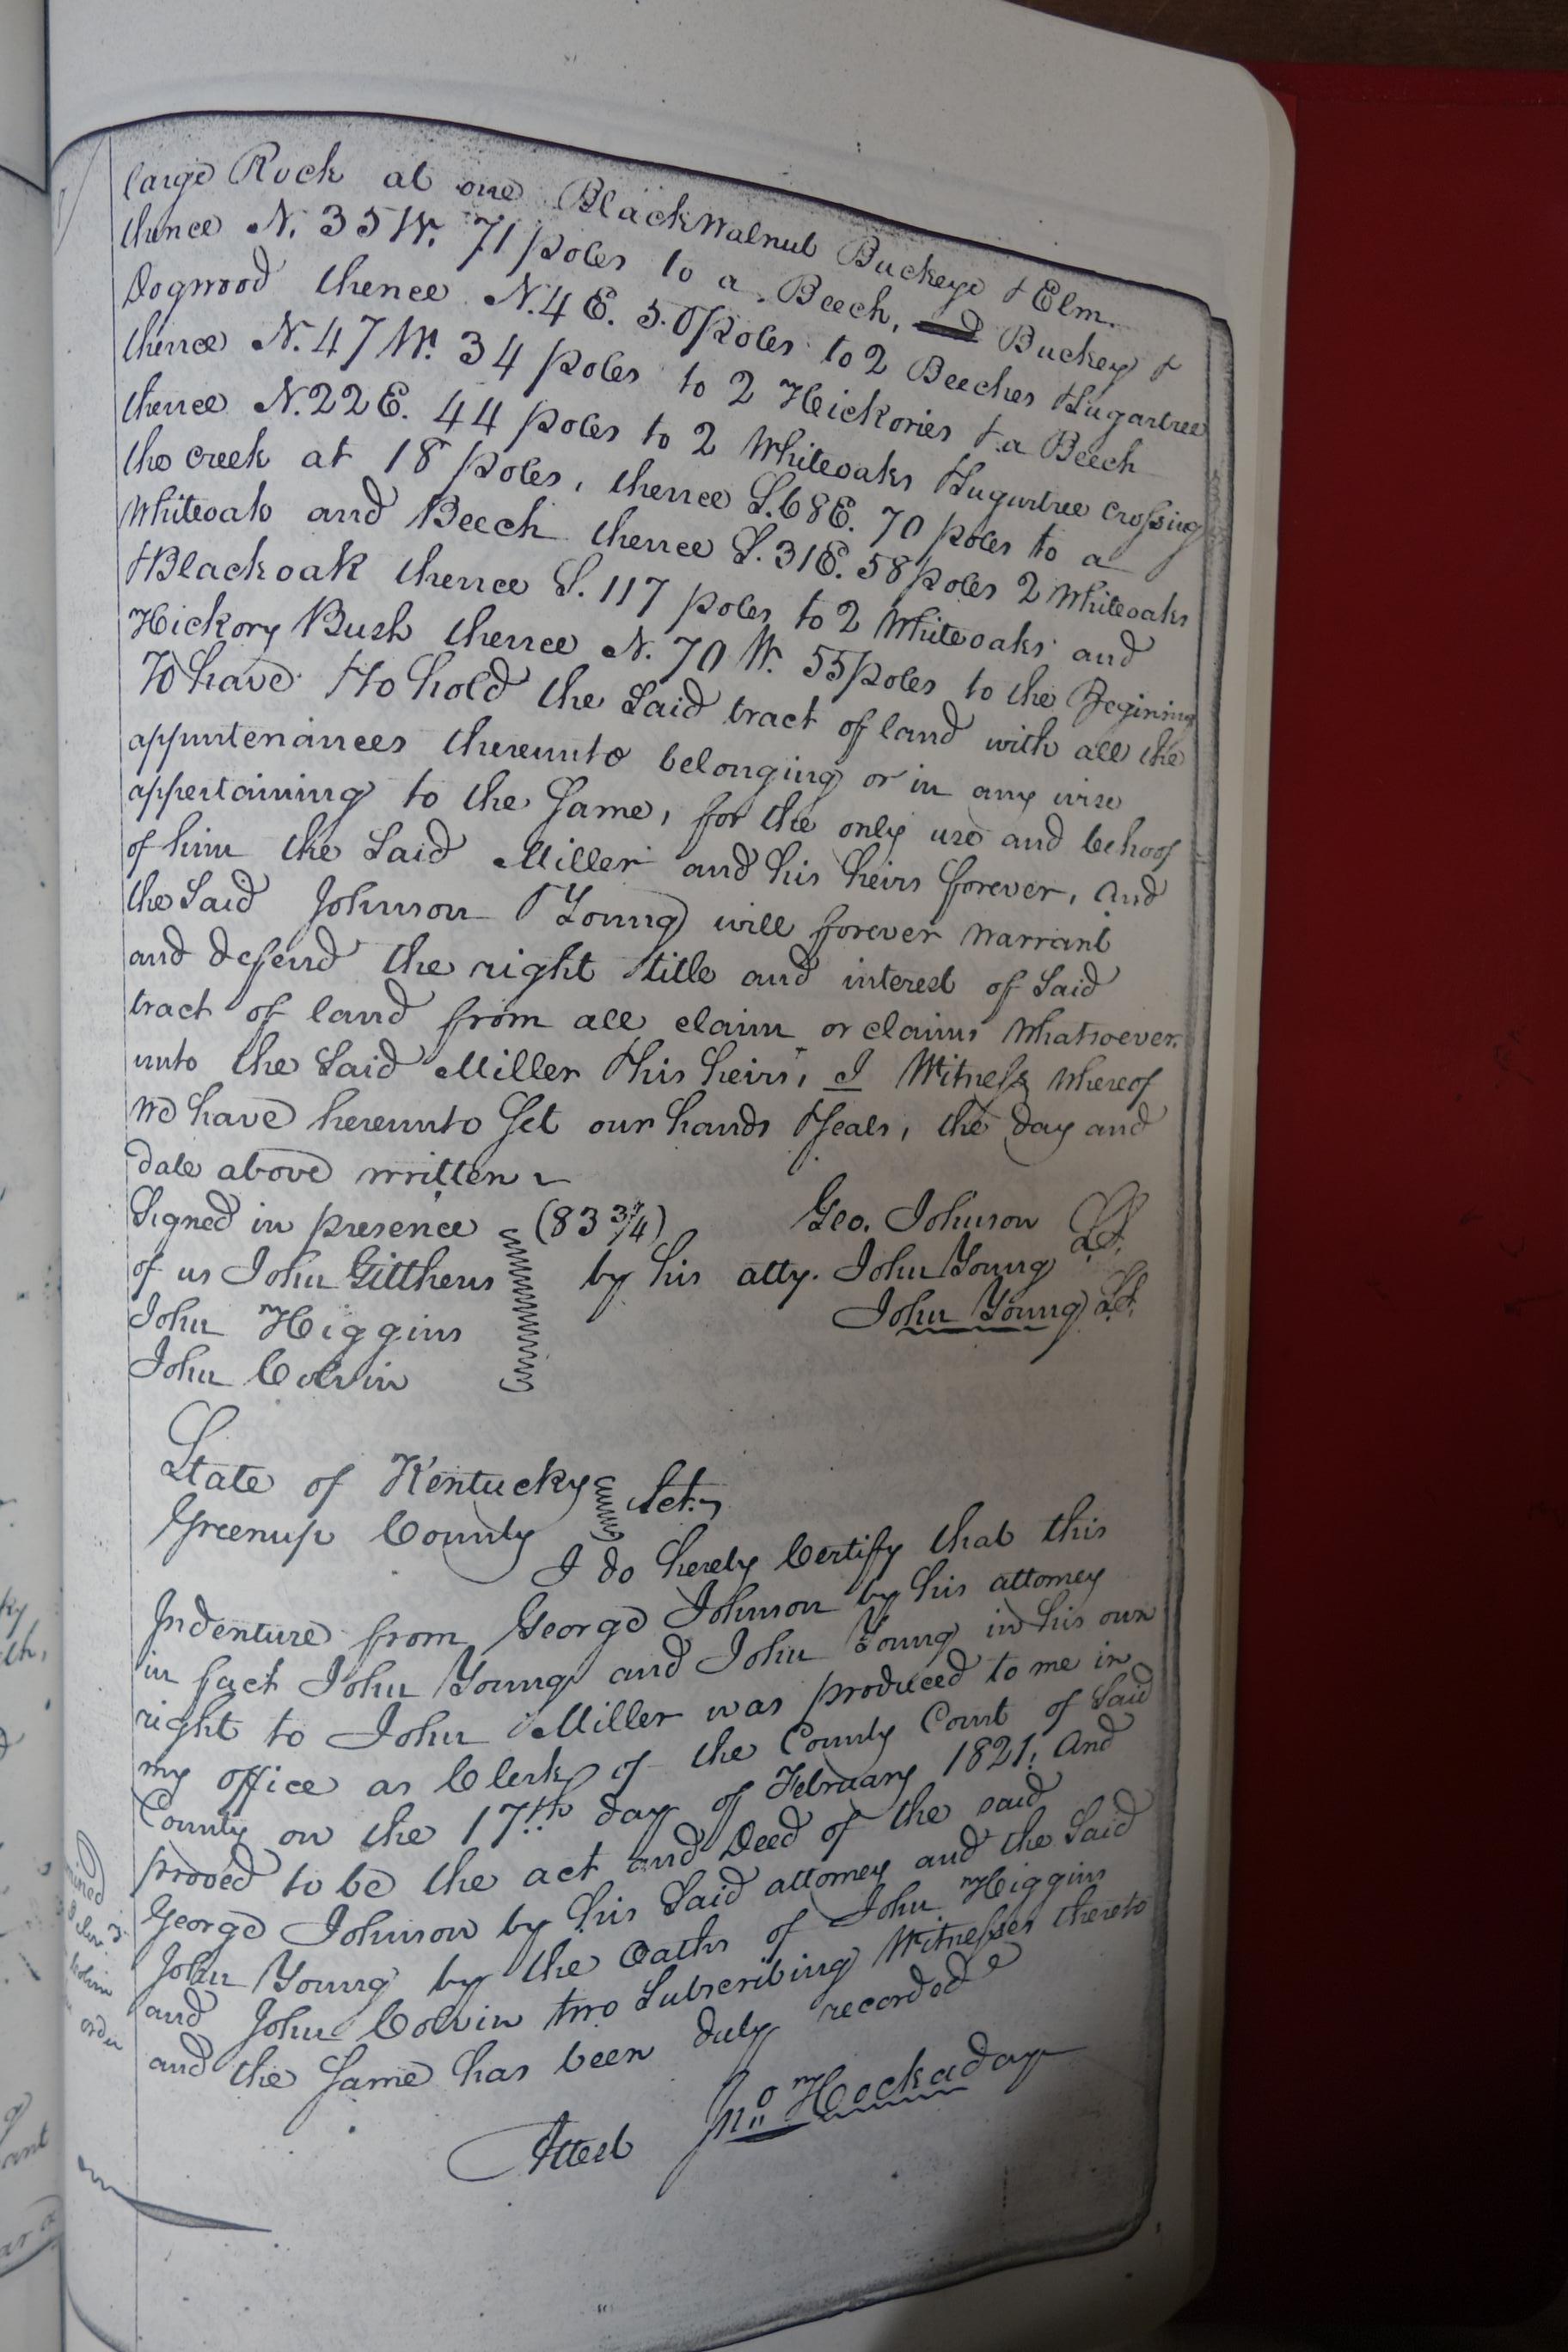 large Rock at one Black Walnut Buckeye & Elm.
thence N. 35 W. 71 poles to a Beech, Buckey &
Dogwood thence N. 4 E. 50 poles to 2 Beeches & Sugartree
thence N. 47 W. 34 poles to 2 Hickories & a Beech
thence N. 22 E. 44 poles to 2 Whiteoaks & Sugartree crossing
the creek at 18 poles, thence S. 68 E. 70 poles to a
Whiteoak and Beech thence S. 31 E. 58 poles 2 Whiteoaks
& Blackoak thence S. 117 poles to 2 Whiteoaks and
Hickory Bush thence N. 70 W. 55 poles to the Begining
To have & to hold the Said tract of land with all the
appurtenances thereunto belonging or in any wise
appertaining to the Same, for the only use and behoof
of him the Said Miller and his heirs forever, and
the Said Johnson & Young will forever warrant
and defend the right title and interest of Said
tract of land from all claim or claims whatsoever.
unto the Said Miller & his heirs, I Witness whereof
we have hereunto Set our hands & Seals, the day and
date above written
Signed in presence (83 3/4) Geo. Johnson L.S.
of us John Gitthens by his atty. John Young
John Higgins John Young L.S.
John Colvin
State of Kentucky
Greenup County Sct.
I do hereby Certify that this
Indenture from George Johnson by his attorney
in fact John Young and John Young in his own
right to John Miller was produced to me in
my office as Clerk of the County Court of Said
County on the 17th day of February 1821. and
prooved to be the act and Deed of the said
George Johnson by his Said attorney and the Said
John Young by the Oaths of John Higgins
and John Colvin two Subscribing Witnesses thereto
and the Same has been duly recorded
Attest Jno. Hockaday